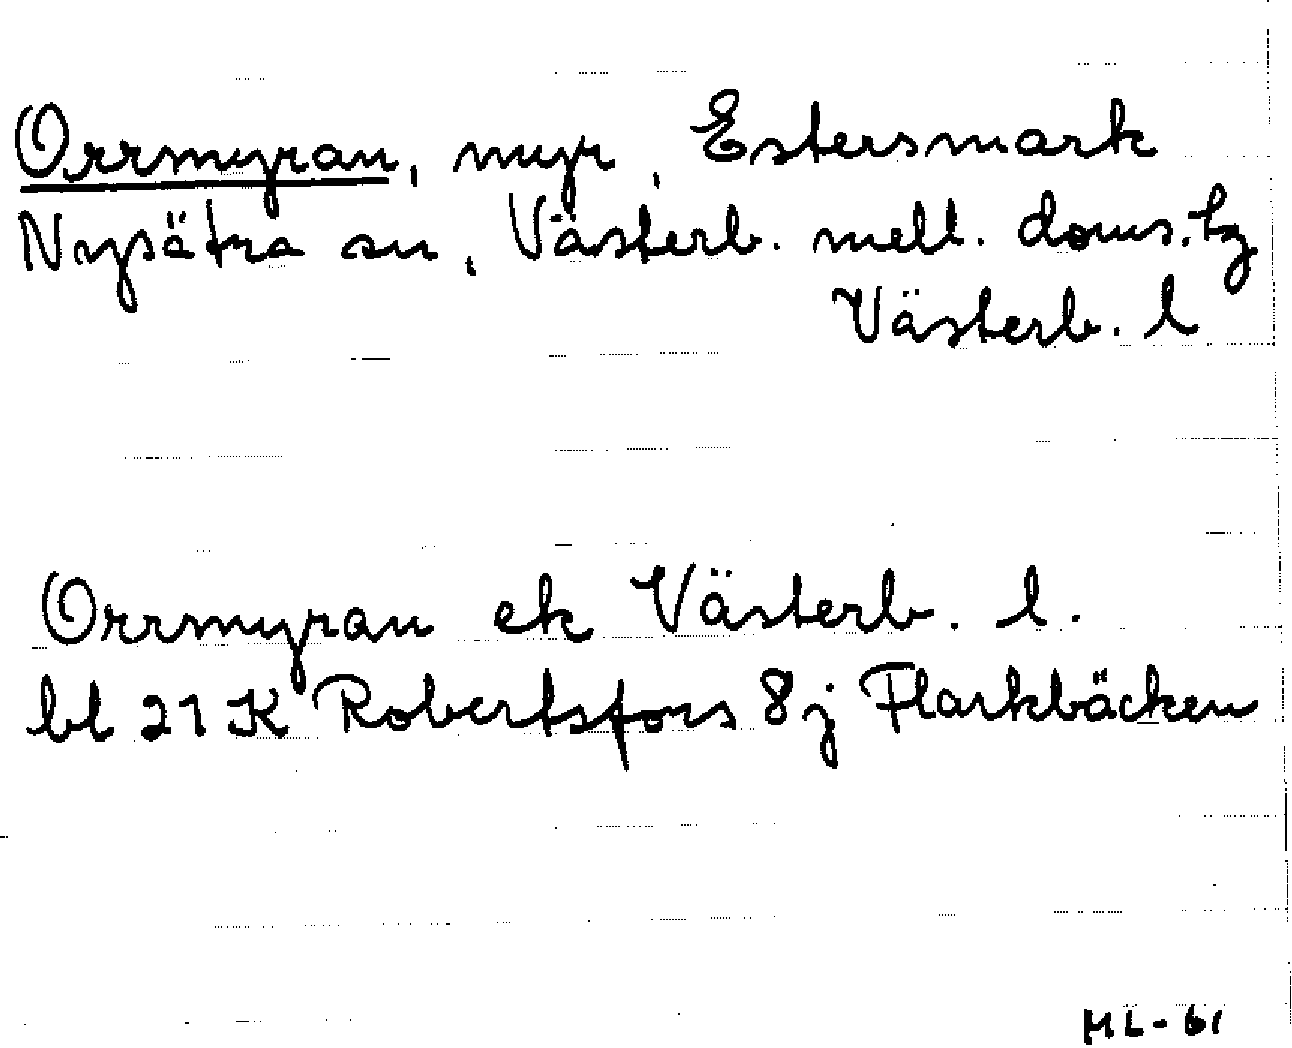 Orrmyran, myr, Estersmark
Nysätra sn, Västerb. mell. doms. tg
Västerb. l
Orrmyran ek Västerb. l.
bl 21 K Robertsfors 8 j Flarkbäcken
ML-61